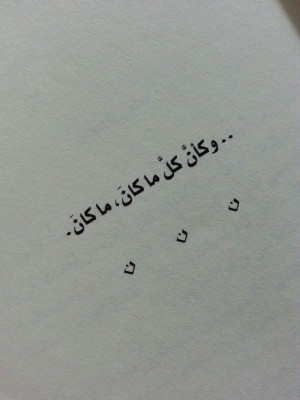 ..وكأنَّ كلَّ ما كانَ، ما كانَ.
ن
ن
ن